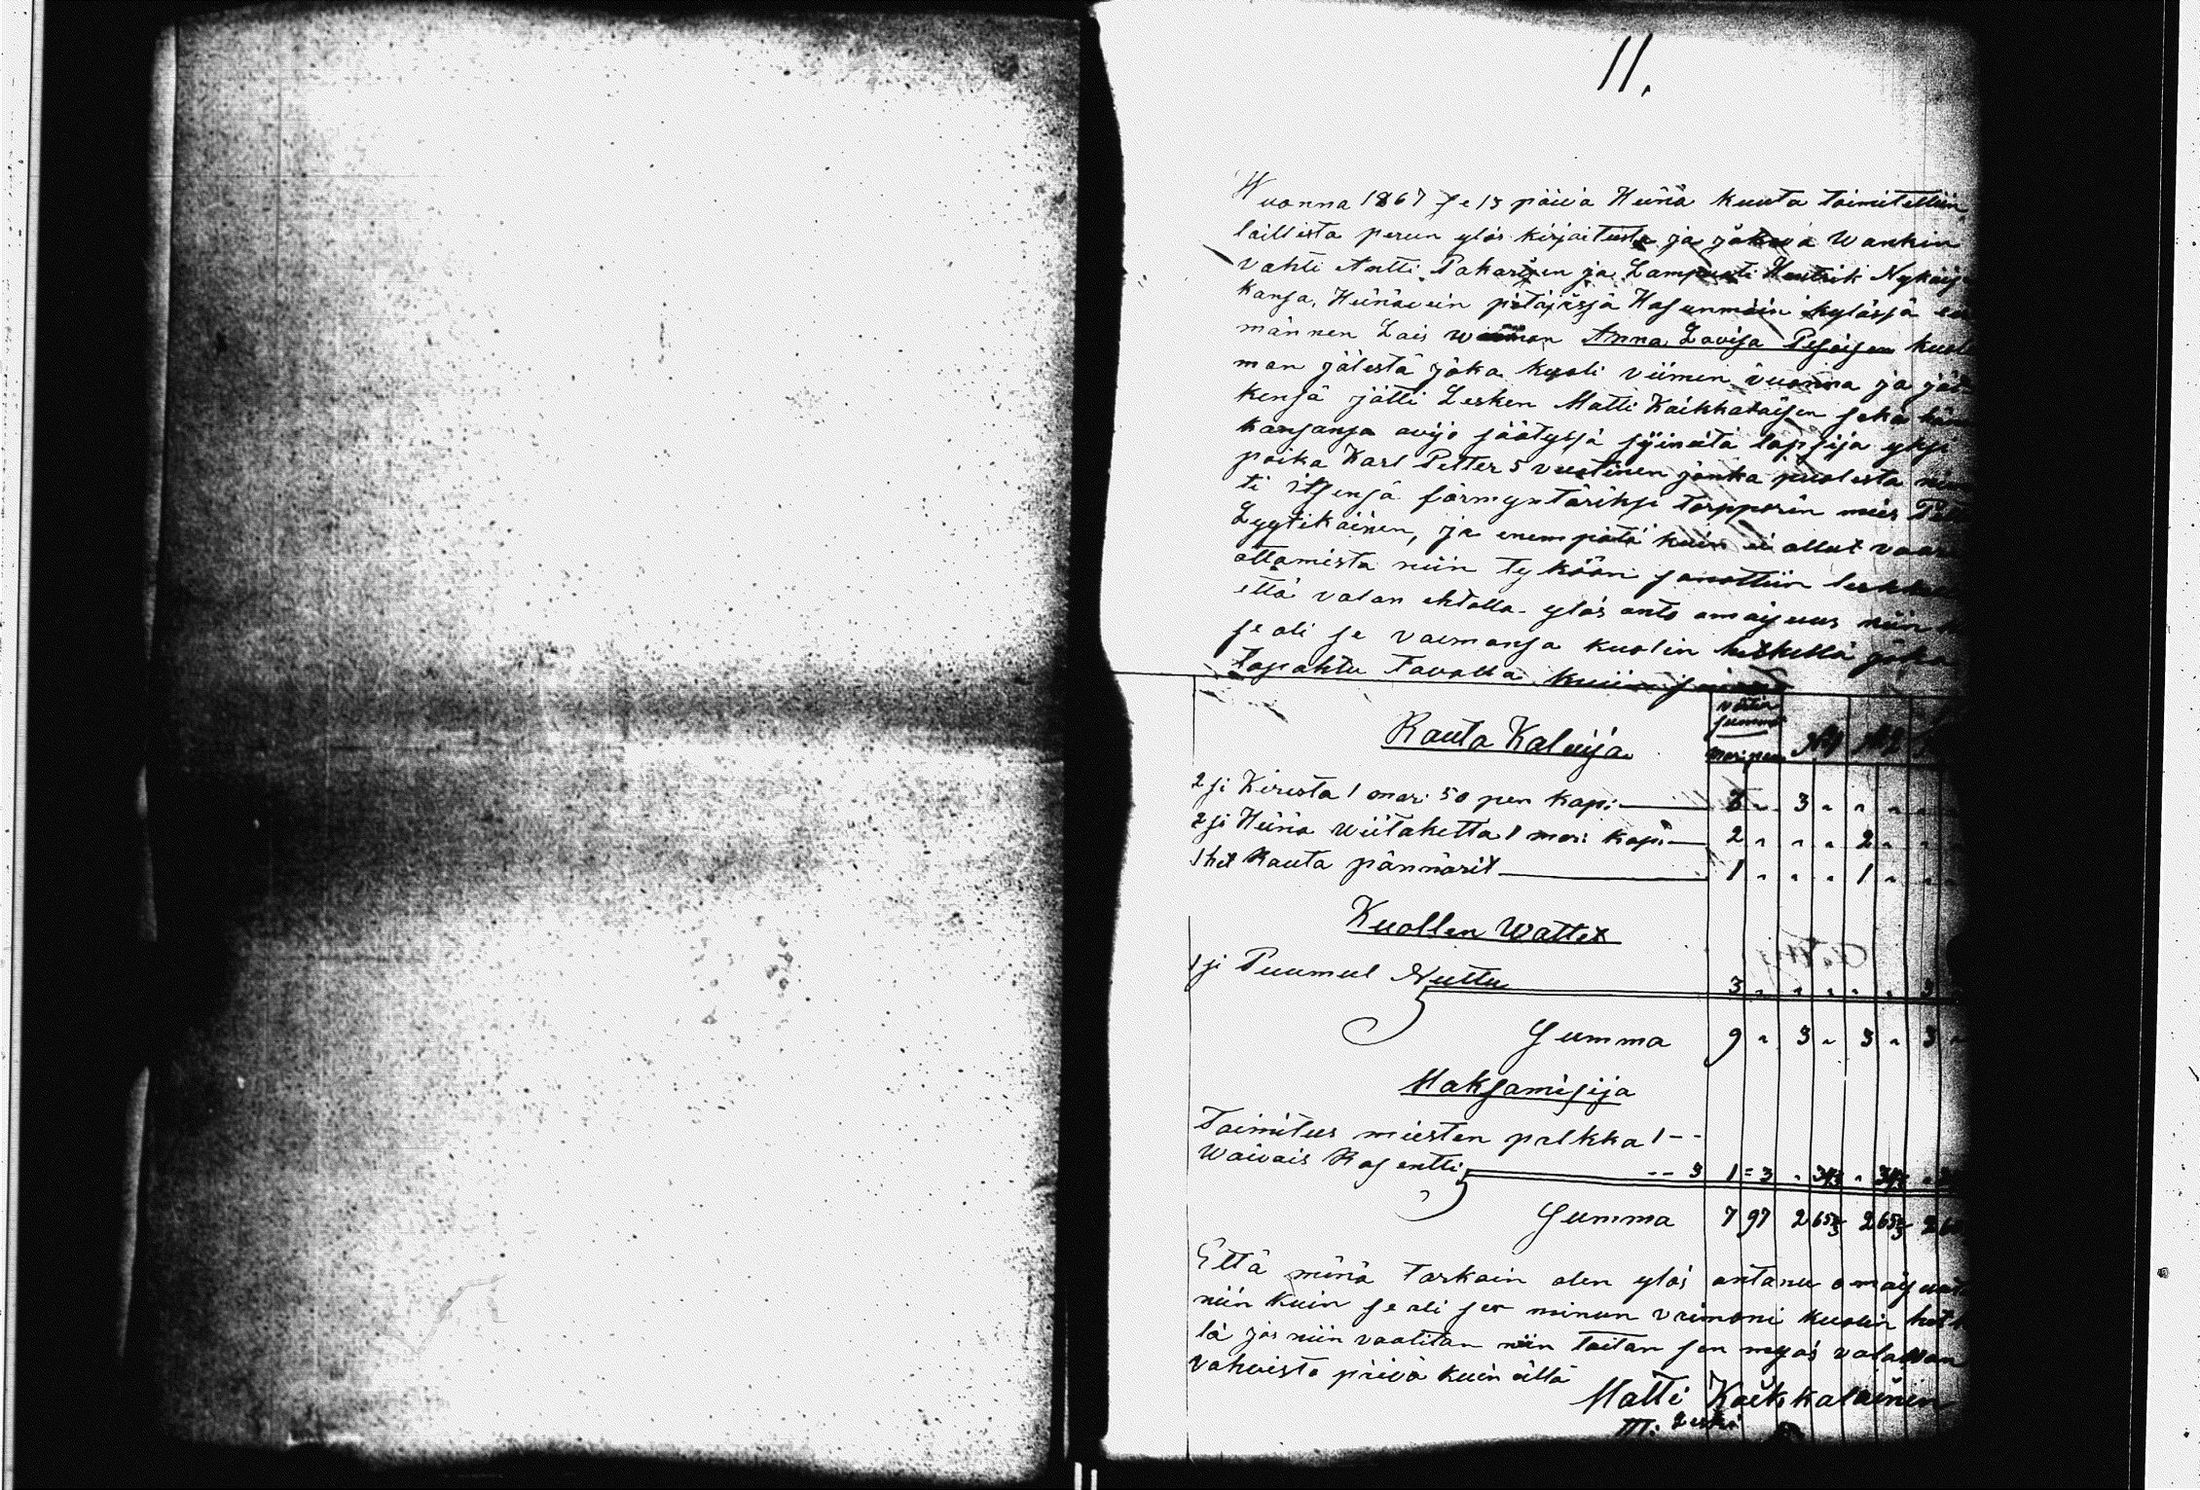 11.
Wuonna 1867 se 13 päivä Heinä kuuta toimitettiin
laillista perun ylös kirjoitusta ja jakoa Wankin
vahti Antti Pakarisen ja Lampuoti Hentrik Nykäsen
kansa, Heinävein pitäjässä Hasunmäin kylässä
männen Lais waimon Anna Lovisa Pesoisen kuol
man jälestä joka kuoli viimen vuonna ja jäl
kensä jätti Lesken Matti Kaikkalaisen sekä hän
kansansa avijo säätyssä syineitä lapsija yksi
poika Karl Petter 5 vuotinen jonka puolesta
ti itsensä förmyntäriksi torpparin mies
Lyytikäinen, ja enempätä kuin ei ollut vaar
ottamista niin tykään sanottiin leskelle
että valan ehtolla ylös anto omaisuus niin
se oli se vaimonsa kuolin hetkellä joka
tapahtu tavalla kuin
Rauta Kaluija
Summa
mar. pen N1 N2
2 si Kirvestä 1 mar: 50 pen kapi 3 " 3 " " "
2 si Heinä wiitaketta 1 mar: kapi 2 " " " 2 "
1 het Rauta pännärit 1 " " " 1 "
Kuollen Wattet
1 si Puumul Nuttu 3 " " " " " 3
Summa 9 " 3 " 3 " 3
Maksamisija
Toimitus miesten palkka 1 - -
Waivais Rosentti - - 3 1 = 3 " 34⅓ " 34⅓
Summa 7 97 2 65⅔ 2 65⅔ 2
Että minä tarkain olen ylös antanu omaisuut
niin kuin se oli sen minun vaimoni kuolin hetk
lä jos niin vaaditan niin taitan sen myös valallan
vahvista päivä kuin ällä
Matti Kaikkalainen
Leski